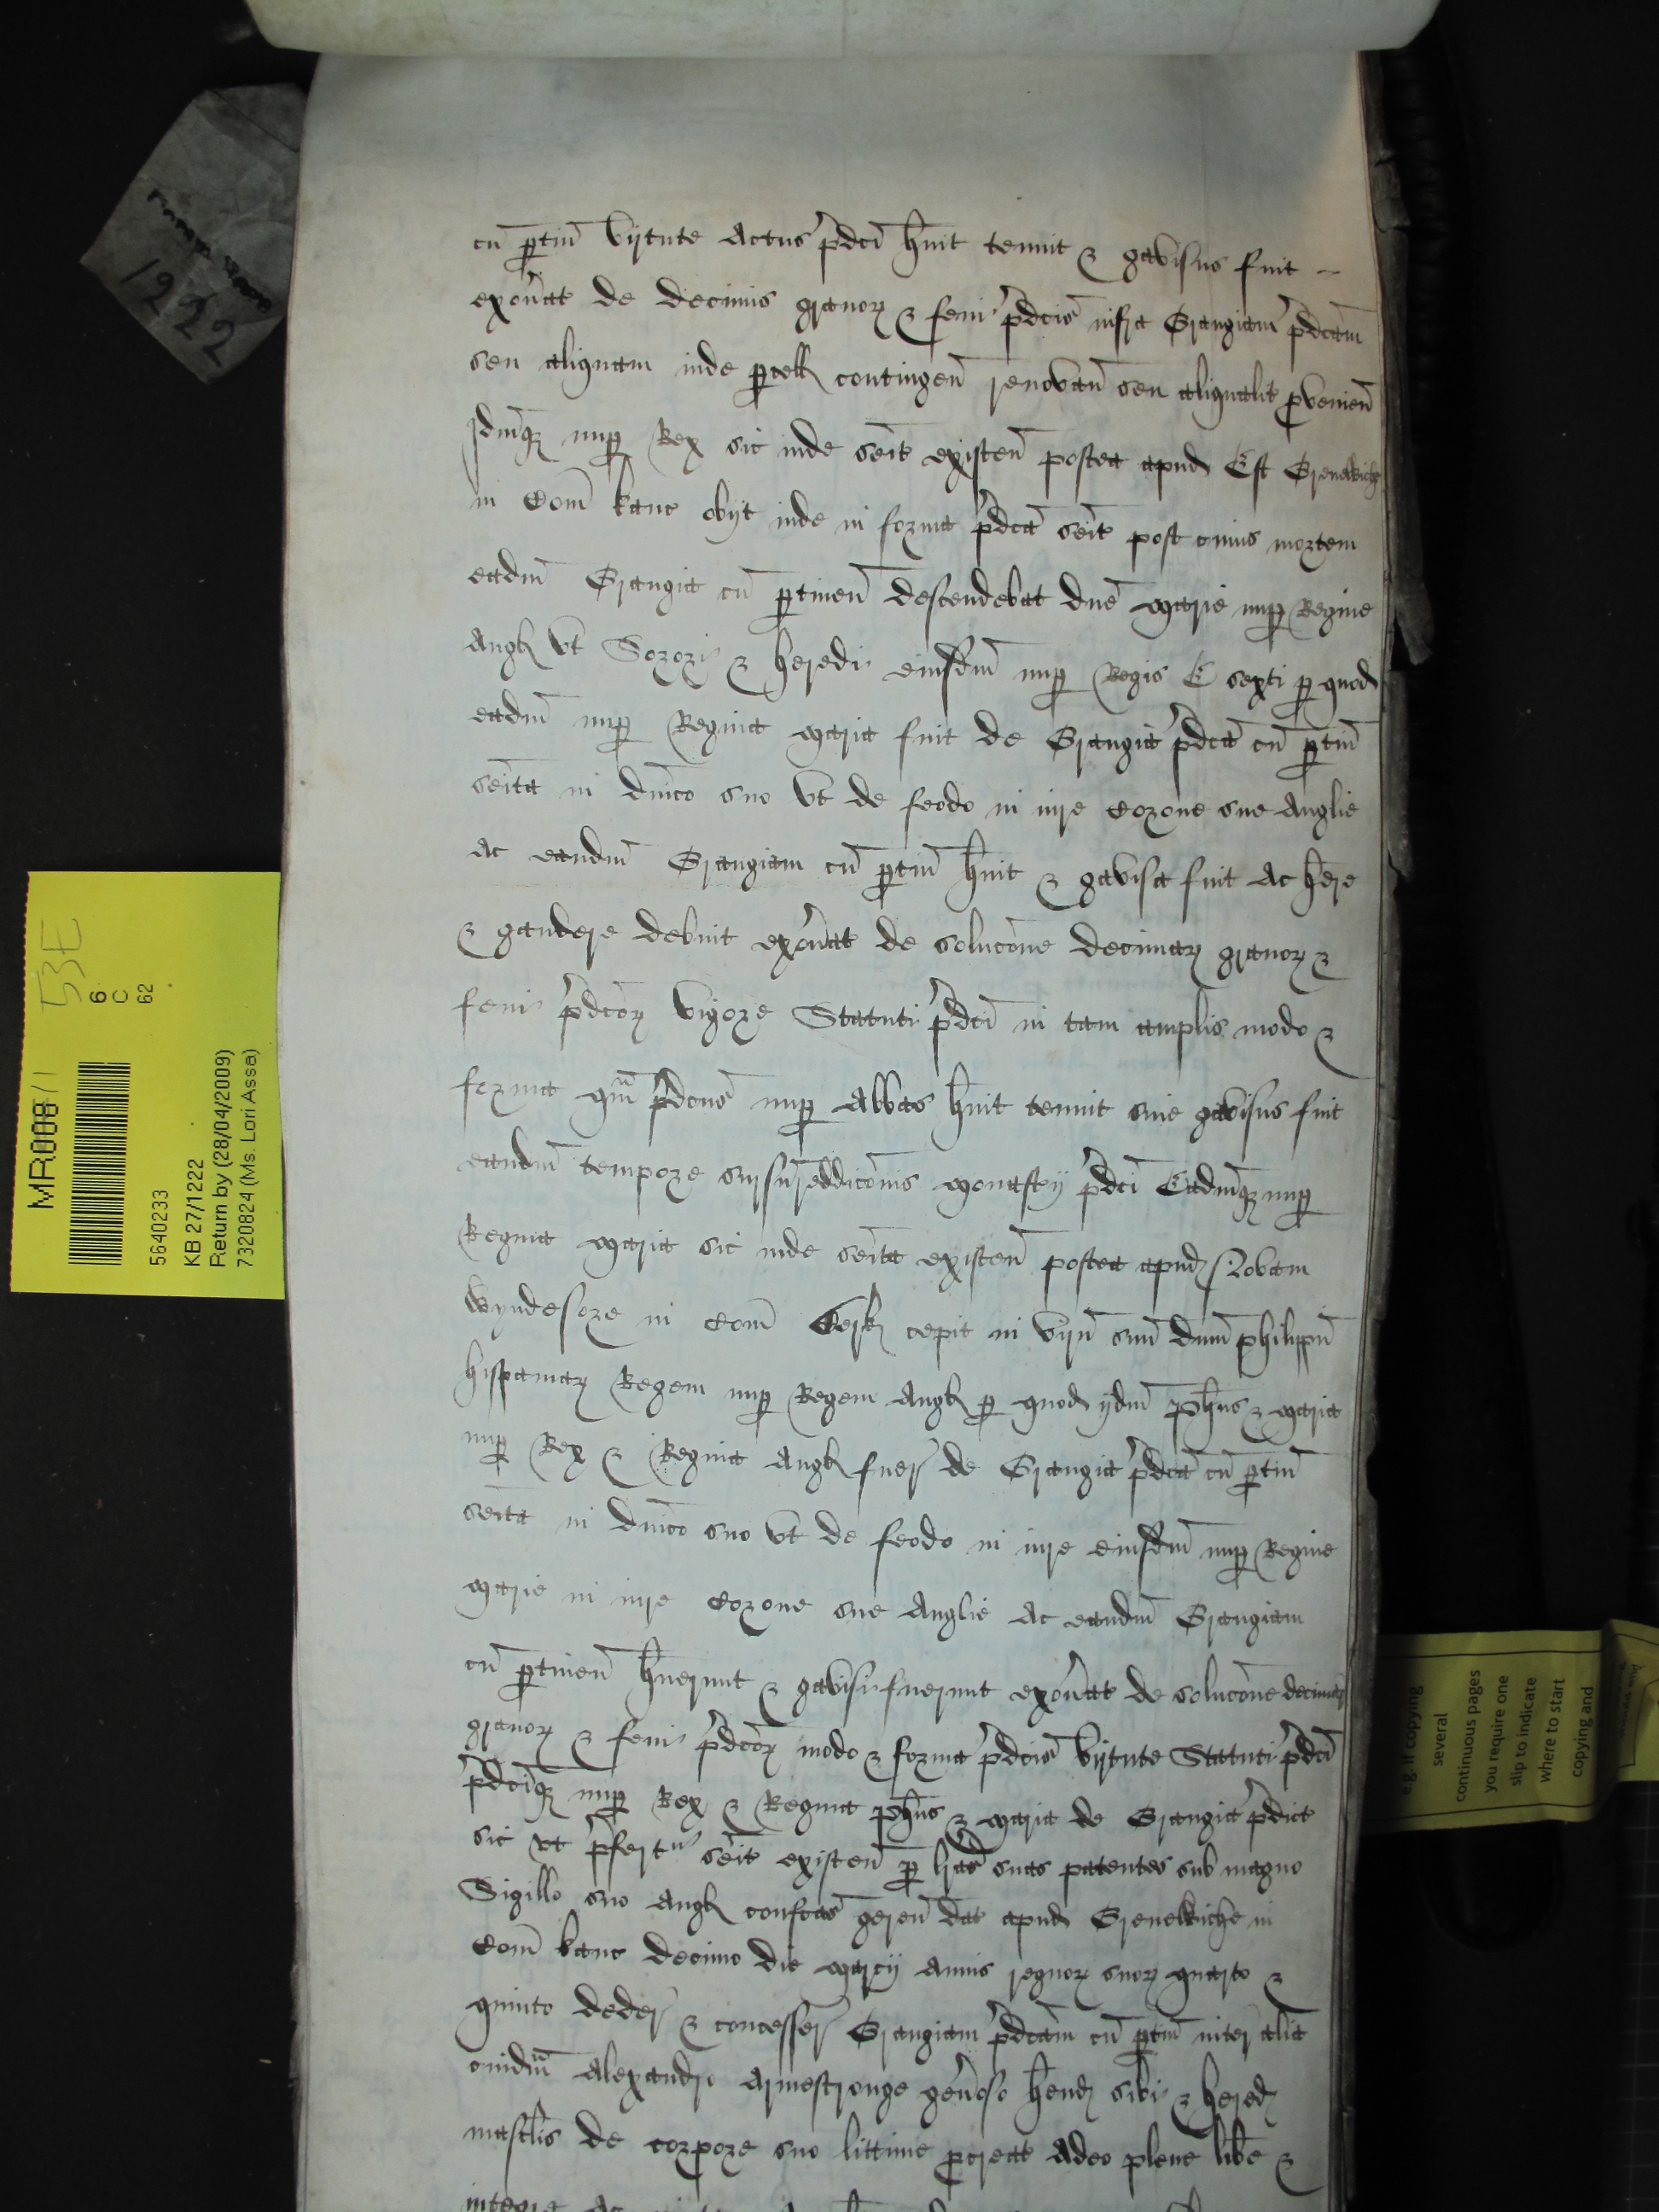 cū ptiñ virtute Actus pdci h̄uit tenuit & gavisus fuit
exon̄at de decimis granoꝝ & feni pdcis infra Grangiam pdcam
seu aliquam inde pcelł contingeñ renovañ seu aliqualit pvenieñ
Idmqꝫ nup Rex sic inde seīt existeñ postea apud Est Grenewiche
in Com̄ kanc obijt inde in forma pdca seīt post cuius mortem
eadm̄ Grangia cū ptineñ descendebat dn̄e marie nup Regine
Angł vt Sorori & heredi eiusdm̄ nup Regis E sexti p quod
eadm̄ nup Regina maria fuit de Grangia pdca cū ptiñ
seīta in dn̄ico suo vt de feodo in iure Corone sue Anglie
ac eandm̄ Grangiam cū ptiñ h̄uit & gavisa fuit Ac h̄ere
& gaudere debuit exon̄at de soluc̄one decimaꝝ granoꝝ &
feni pdcoꝝ vigore Statuti pdci in tam amplis modo &
forma qm̄ pdcus nup Abbas h̄uit tenuit sive gavisus fuit
eandm̄ tempore sursūreddic̄onis monastij pdci Eadmqꝫ nup
Regina maria sic inde seīta existeñ postea apud Novam
wyndesore in Com̄ Berk cepit in virū suū dn̄um philippū
hispaniaꝝ Regem nup Regem Angł p quod ijdm̄ Ph̄us & maria
nup Rex & Regina Angł fuer̄ de Grangia pdca cū ptiñ
seīta in dn̄ico suo vt de feodo in iure eiusdm̄ nup Regine
marie in iure Corone sue Anglie Ac eandm̄ Grangiam
cū ptineñ h̄uerunt & gavisi fuerunt exon̄at de soluc̄one decimaꝝ
granoꝝ & feni pdcoꝝ modo & forma pdcis virtute Statuti pdci
pdciqꝫ nup Rex & Regina Ph̄us & maria de Grangia pdict
sic vt pfertur seīt existeñ p lr̄as suas patentes sub magno
Sigillo suo Angł confcas gereñ dat apud Grenewiche in
Com̄ kanc decimo die marcij Annis regnoꝝ suoꝝ quarto &
quinto deder̄ & concesser̄ Grangiam pdcam cū ptiñ inter alia
cuidm̄ Alexandro Armestronge gen̄oso h̄end sibi & hered
mascłis de corpore suo ł̄ittime pcreat Adeo plene lib̄e &
integre Ac
MR008/1
53E
6
C
62
5640233
KB 27/1222
Return by (28/04/2009)
7320824 (Ms. Lori Assa)
1222
e.g. If copying
several
continuous pages
you require one
slip to indicate
where to start
copying and